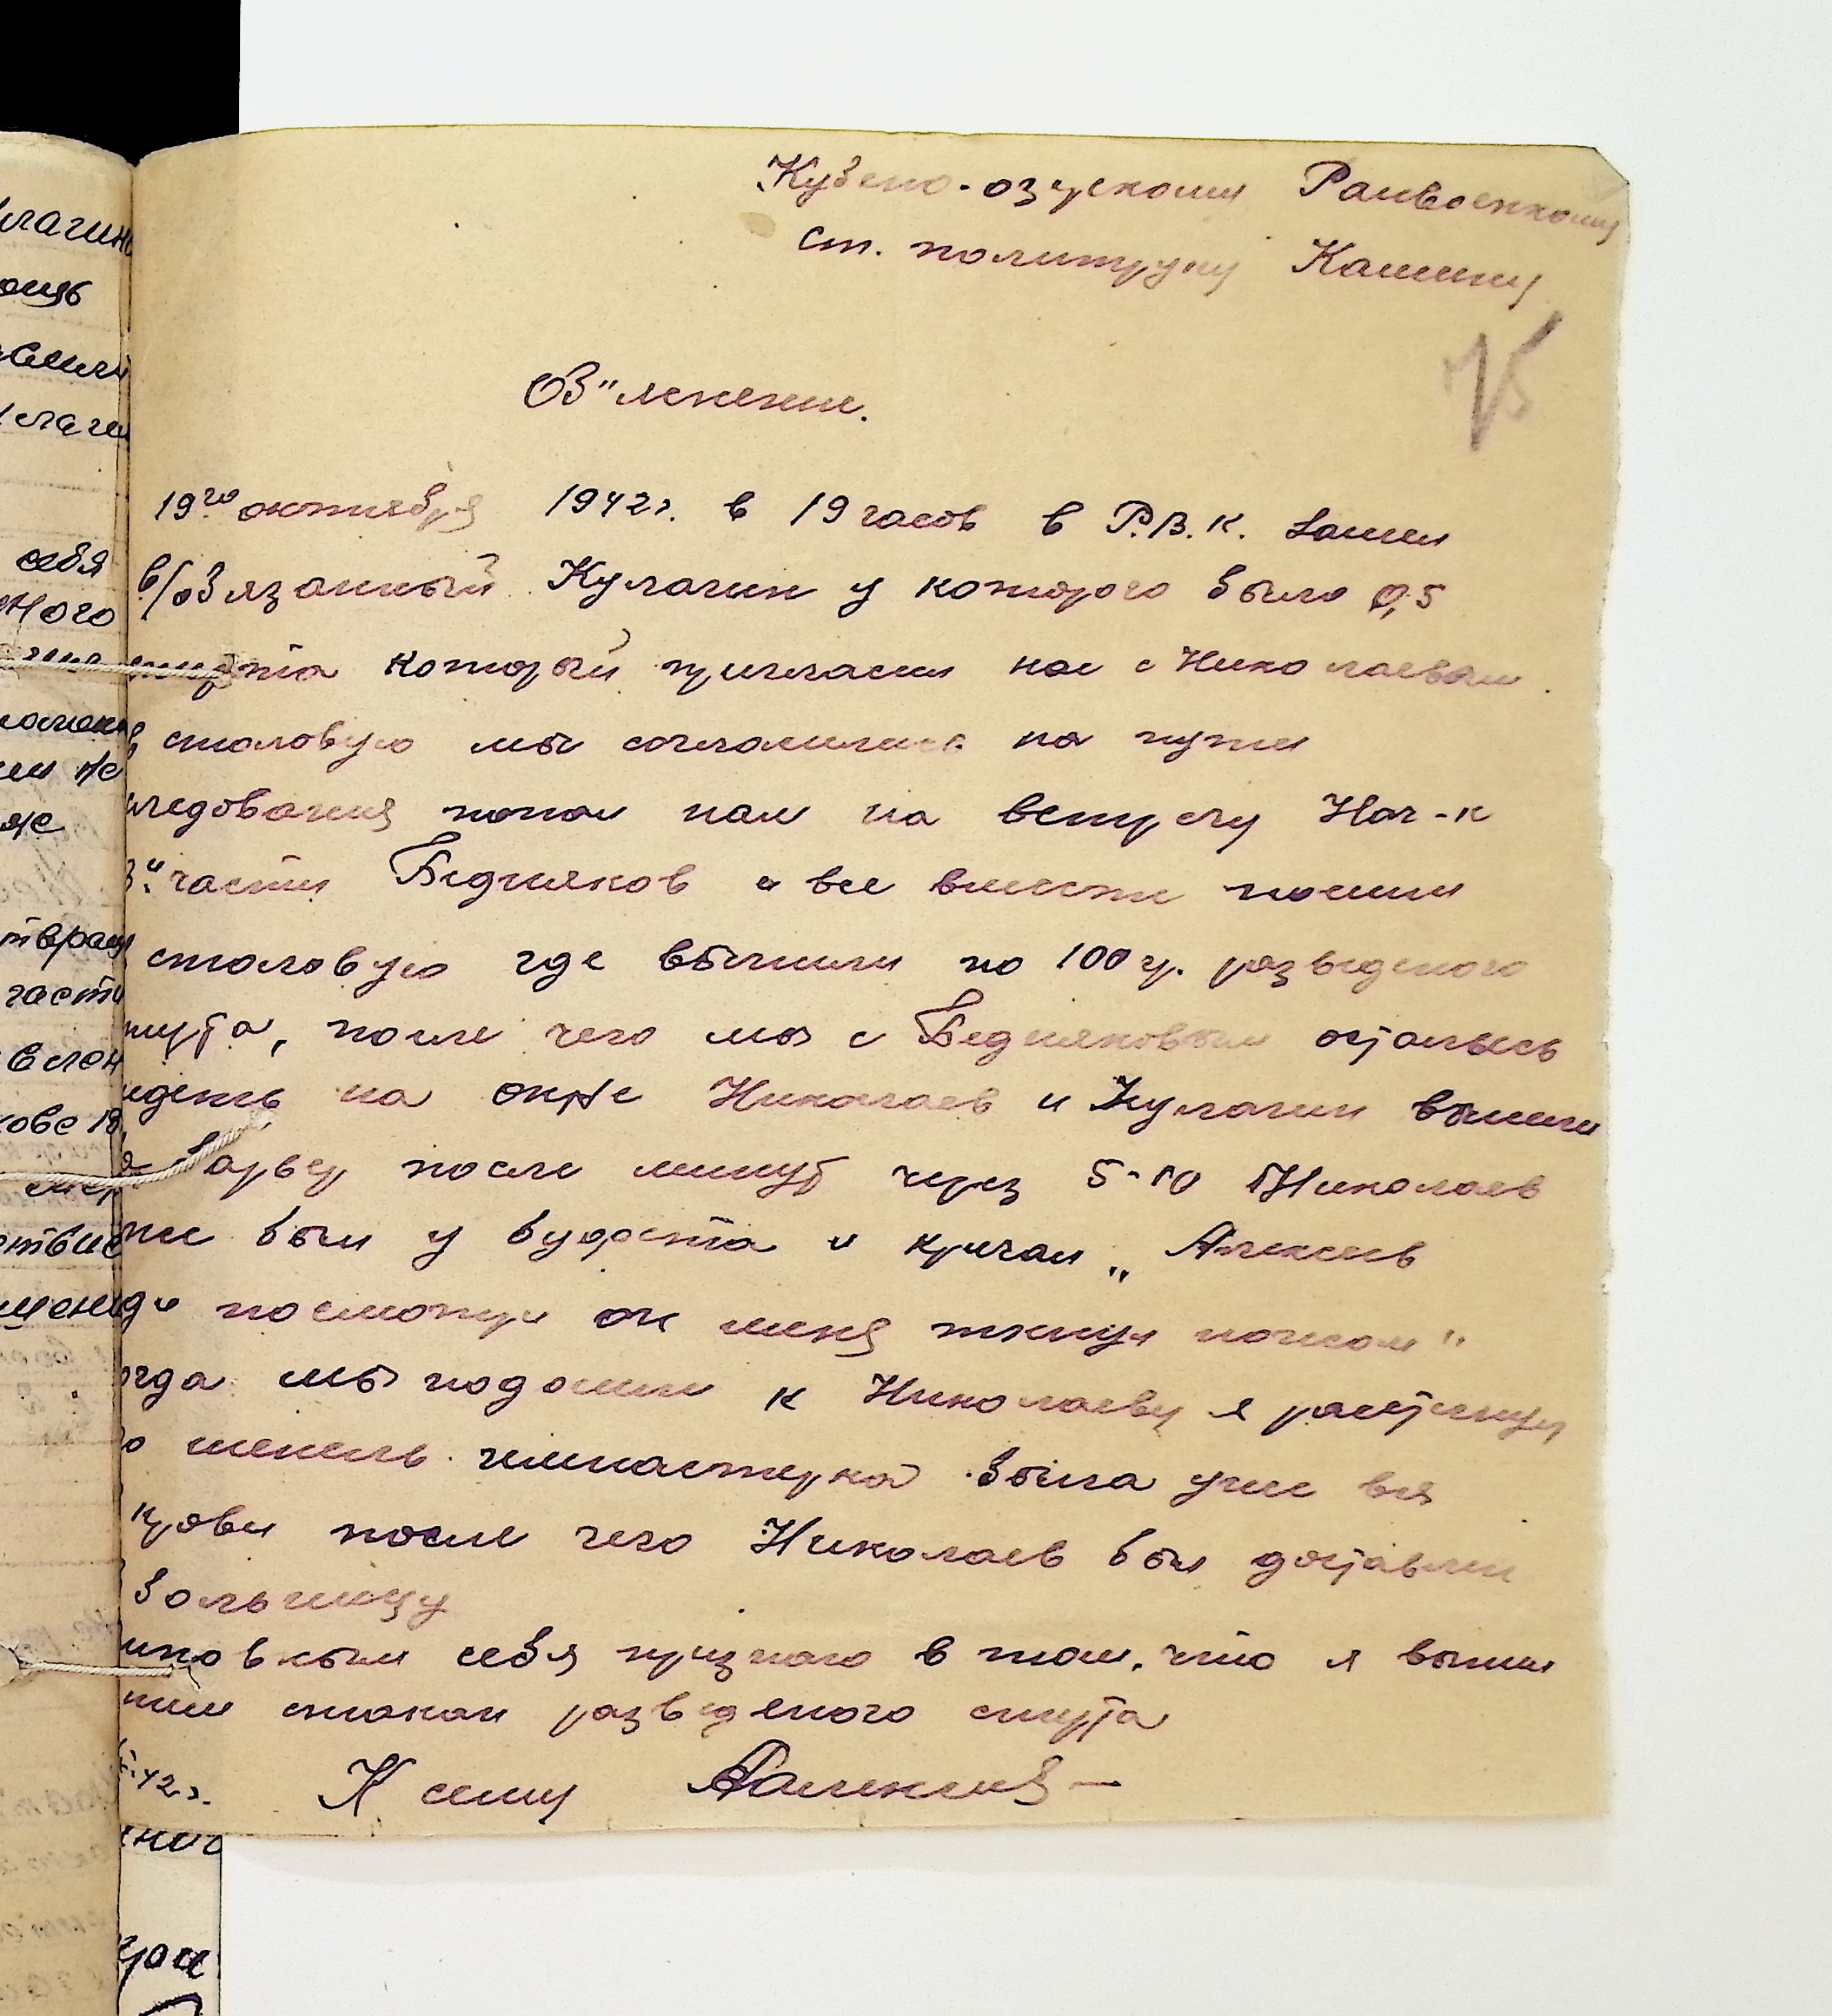 Кубено-озускому Раивоенкому
ст. политруку Кашину
Об"яснение.
19го октября 1942г. в 19 часов в Р.В.К. зашел
в/обязанный Кулагин у которого было 0,5
спирта который пригласил нас с Николаевым
в столовую мы согласились на пути
следования попал нам на встречу Нач-к
3й части Бедняков и все вместе пошли
столовую где выпили по 100 гр. разведеного
спирта, после чего мы с Бедняковым остались
сидеть на окне Николаев и Кулагин вышли
после минут через 5-10 Николаев
уже был у буфета и кричал „Алексеев
иди посмотри он меня ткнул ножом"
когда мы подошли к Николаеву я растегнул
его шенель гимнастерка была уже вся
крови после чего Николаев был доставлен
больницу
виновным себя признаю в том, что я выпил
стакан разведеного спирта
42г. К сему Алексеев
лагин
себя
ного
части